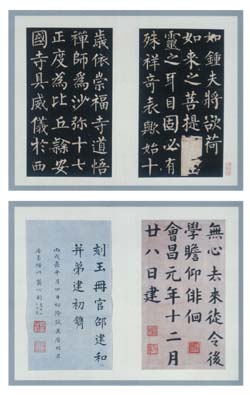 如鍾夫將欲荷
如來之菩提
靈之耳目固必有
殊祥奇表歟始十
歲依崇福寺道悟
禪師為沙弥十七
正度為比丘隸安
國寺具威儀於西
無心去來徒令後
學瞻仰俳佪
會昌元年十二月
廿八日建
刻玉冊官邵建和
并弟建初鐫